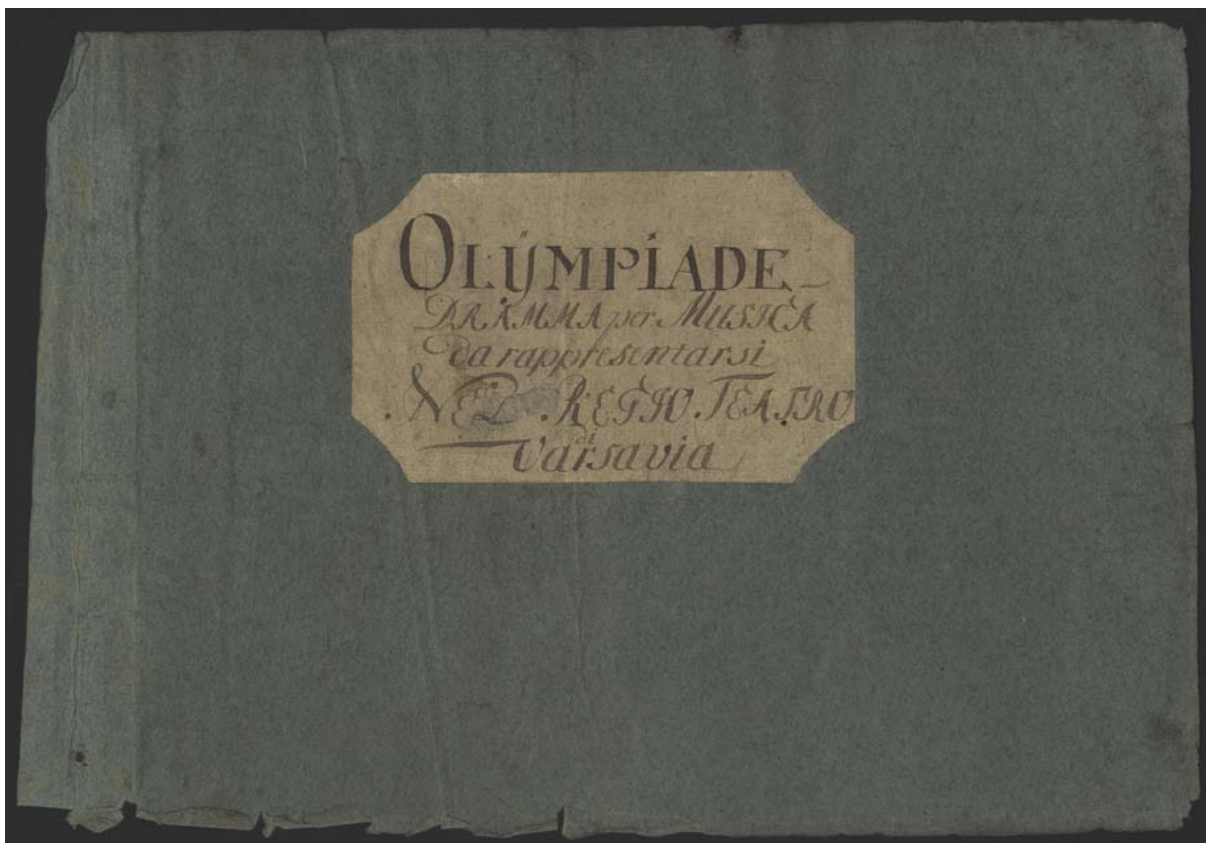 OLYMPIADE
DRAMMA per MUSICA
da rappresentarsi
NEL REGIO TEATRO
di
Varsavia